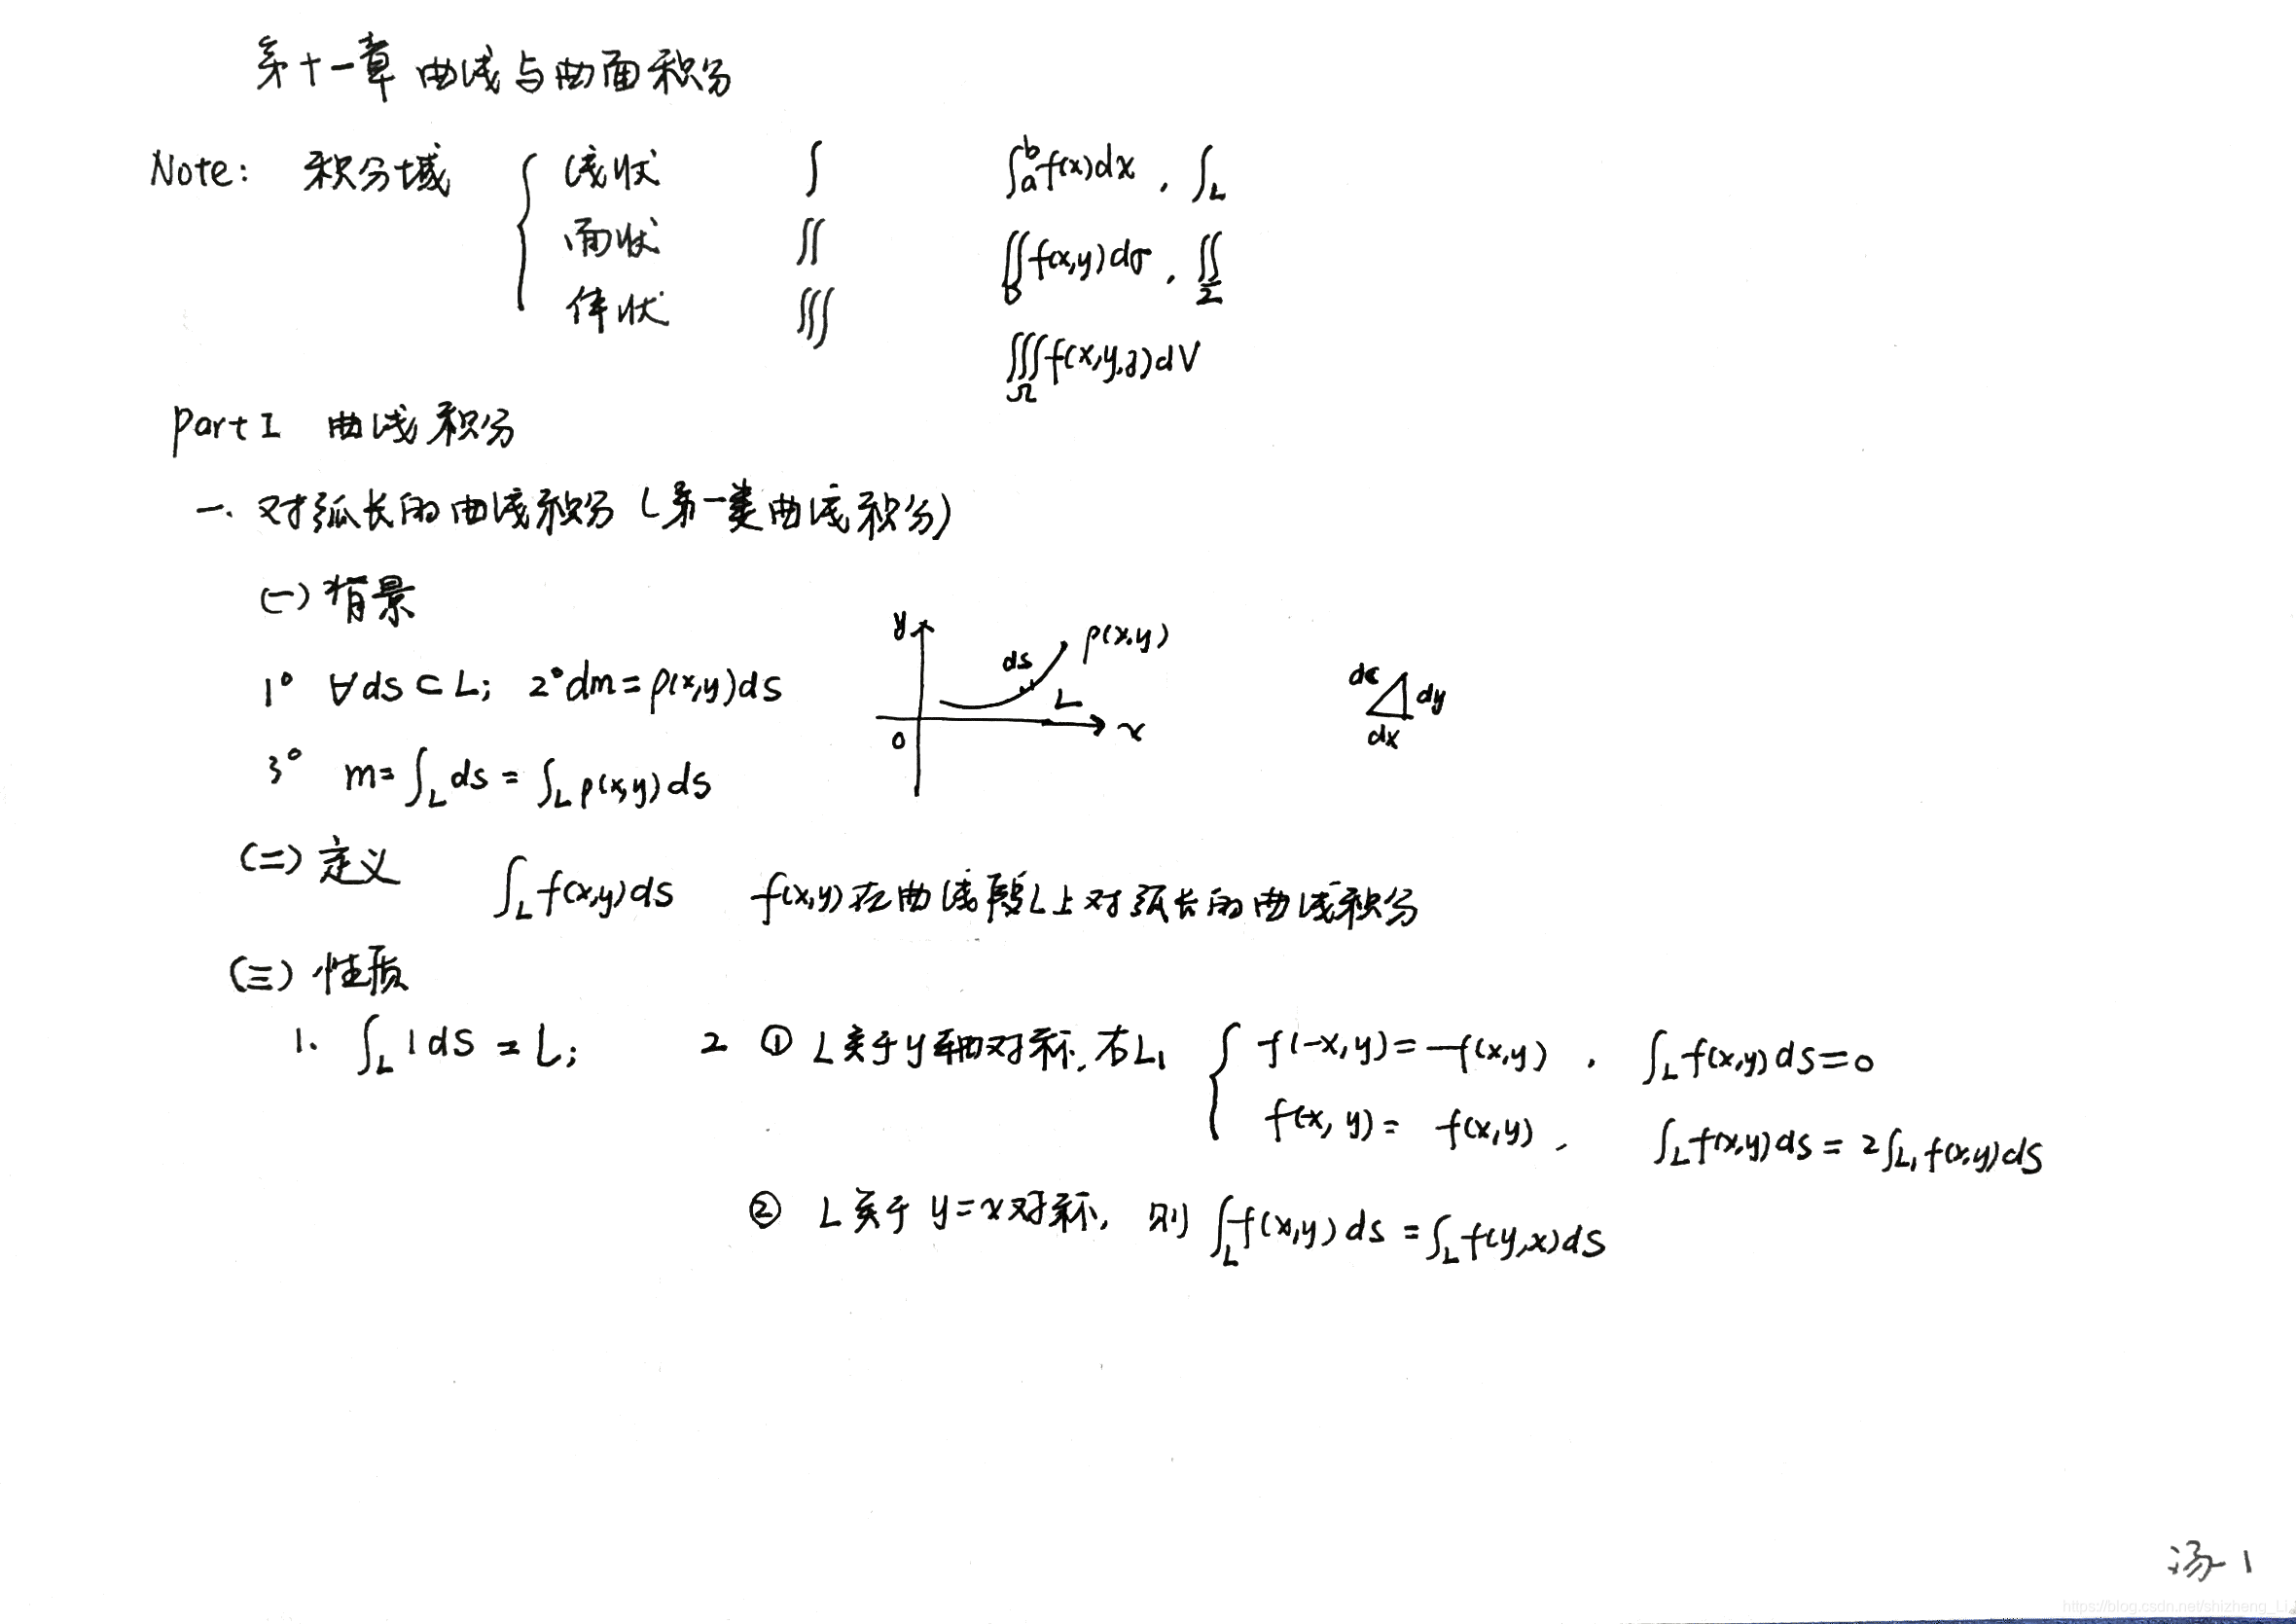 第十一章 曲线与曲面积分
Note: 积分域 { 线状 ∫ ∫_a^b f(x)dx, ∫_L
面状 ∬ ∬_D f(x,y)dσ, ∬_Σ
体状 ∭ ∭_Ω f(x,y,z)dV
Part I 曲线积分
一. 对弧长的曲线积分(第一类曲线积分)
(一) 背景
y ds ρ(x,y) L x 0
ds dy dx
1° ∀ds⊂L; 2° dm=ρ(x,y)ds
3° m=∫_L ds=∫_L ρ(x,y)ds
(二) 定义 ∫_L f(x,y)ds f(x,y)在曲线段L上对弧长的曲线积分
(三) 性质
1. ∫_L 1ds=L; 2 ① L关于y轴对称,右L₁ { f(-x,y)=-f(x,y), ∫_L f(x,y)ds=0
f(-x,y)= f(x,y), ∫_L f(x,y)ds=2∫_L₁ f(x,y)ds
② L关于y=x对称, 则 ∫_L f(x,y)ds=∫_L f(y,x)ds
汤-1
https://blog.csdn.net/shizheng_Li